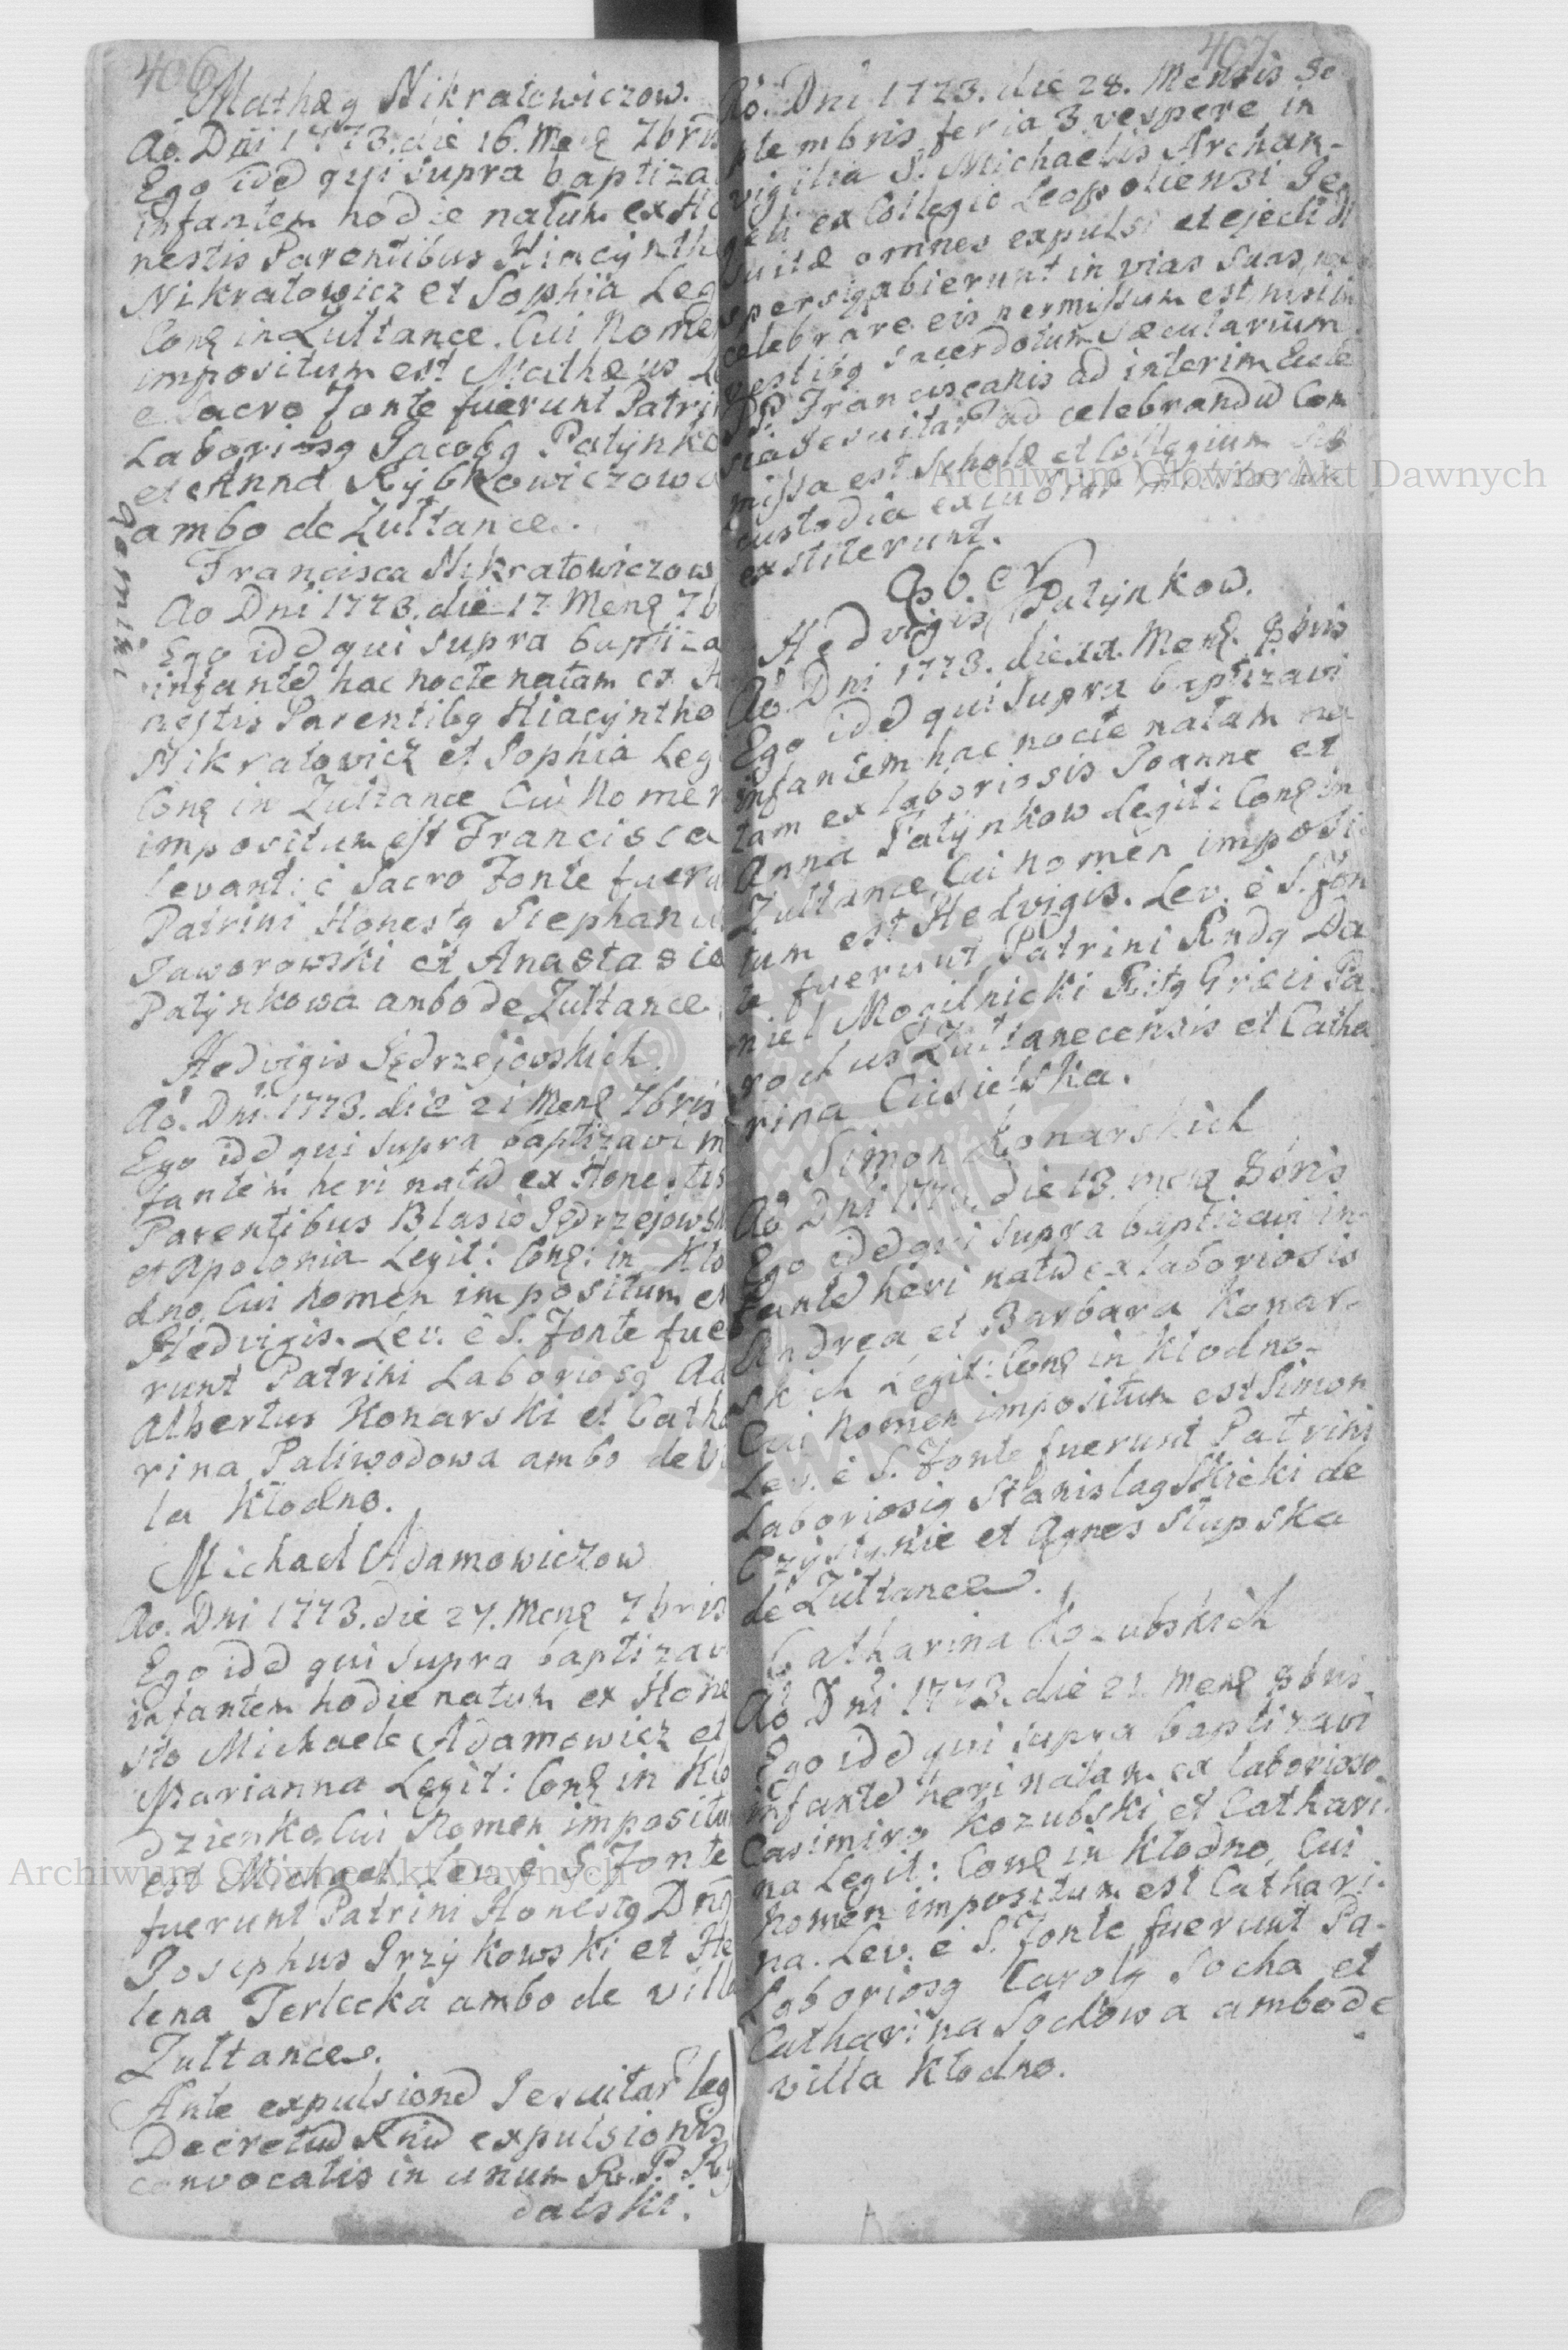 406
Mathæg Nikratowiczow.
Ao. Dni 1773. die 16. Meng 7bris
Ego idd qui supra baptiza
infantem hodie natum ex Ho
nestis Parentibus Hiacyntho
Nikratowicz et Sophia Leg
Cong in Zultance. Cui Nomen
impositum est Mathæus Le
e Sacro fonte fuerunt Patrin
Laboriosg Jacobg Patynko
et Anna Rybkowiczowa
ambo de Zultance.
gemini
Francisca Nikratowiczow
Ao Dni 1773. die 17 Meng 7b
Ego idd qui supra baptiza
infantd hac nocte natam ex H
nestis Parentibg Hiacyntho
Nikratowicz et Sophia Legi
Cong in Zultance Cui Nomen
impositum est Francisca
levant: è Sacro Fonte fueru
Patrini Honestg Stephanus
Jaworowski et Anastasia
Patynkowa ambo de Zultance.
Hedvigis Jędrzejowskich.
Ao. Dni. 1773. die 21 Meng 7bris
Ego idd qui supra baptizavi in
fantem heri natd ex Honestis
Parentibus Blasio Jędrzejowsk
et Apolonia Legit: Cong: in Kło
dno, Cui nomen impositum est
Hedvigis. Lev. è S. Fonte fue
runt Patrini Laboriosg Ad
Albertus Konarski et Catha
rina Paliwodowa ambo de Vi
la Kłodno.
Michael Adamowiczow
Ao. Dni 1773. die 27. Meng 7bris
Ego idd qui supra baptizav
infantem hodie natum ex Hone
sto Michaele Adamowicz et
Marianna Legit: Cong in Kło
dzienko, Cui Nomen impositu
est Michael Lev. è S. Fonte
fuerunt Patrini Honestg Dng
Josephus Grzykowski et He
lena Terlecka ambo de villa
Zultance.
Ante expulsiond Jesuitar leg
Decretud expulsionis
convocatis in unum R. P. Ry
dalski.
407
Ao. Dni 1773. die 28. Mensis Se
ptembris feria 3 vespere in
vigilia S. Michaelis Archan-
geli ex Collegio Leopoliensi Je
suitæ omnes expulsi et ejecti di
spersiq abierunt in vias suas, nec
celebrare eis permissum est, nisi in
vestibg sacerdotum sæcularium.
PP. Franciscanis ad interim Eccle
sia Jesuitar ad celebrandd Com
missa est Scholæ et Collegium sub
custodia excubiar militarium
exstiterunt.
8b.er
Hedvigis Patynkow.
Ao. Dni 1773. die Meng. 8bris
Ego idd qui supra baptizavi
infantem hac nocte natam na
tam ex laboriosis Joanne et
Anna Patynkow Legiti Cong in
Zultance, Cui nomen imposi
tum est Hedvigis. Lev. è S. Fon
te fuerunt Patrini Rndg Da
niel Mogilnicki Ritg Græci Pa
rochus Zultanecensis et Catha
rina Cusielska.
Simon Konarskich
Ao Dni 1773. die 13. meng 8bris
Ego idd qui supra baptizavi in-
fantd heri natd ex laboriosis
Andrea et Barbara Konar-
skich Legit: Cong in Kłodno.
Cui Nomen impositum est Simon
Lev. è S. Fonte fuerunt Patrini
Laboriosig Stanislag Slicki de
et Agnes Słupska
de Zultance.
Catharina Kozubskich
Ao Dni 1773. die 21. Meng 8bris
Ego idd qui supra baptizavi
infantd heri natam ex laborioso
Casimiro Kozubski et Cathari
na Legit: Cong in Kłodno, Cui
nomen impositum est Cathari-
na. Lev. è S. Fonte fuerunt Pa-
Laboriosg Carolg Socha et
Catharina Sochowa ambo de
villa Kłodno.
Archiwum Główne Akt Dawnych
Archiwum Główne Akt Dawnych